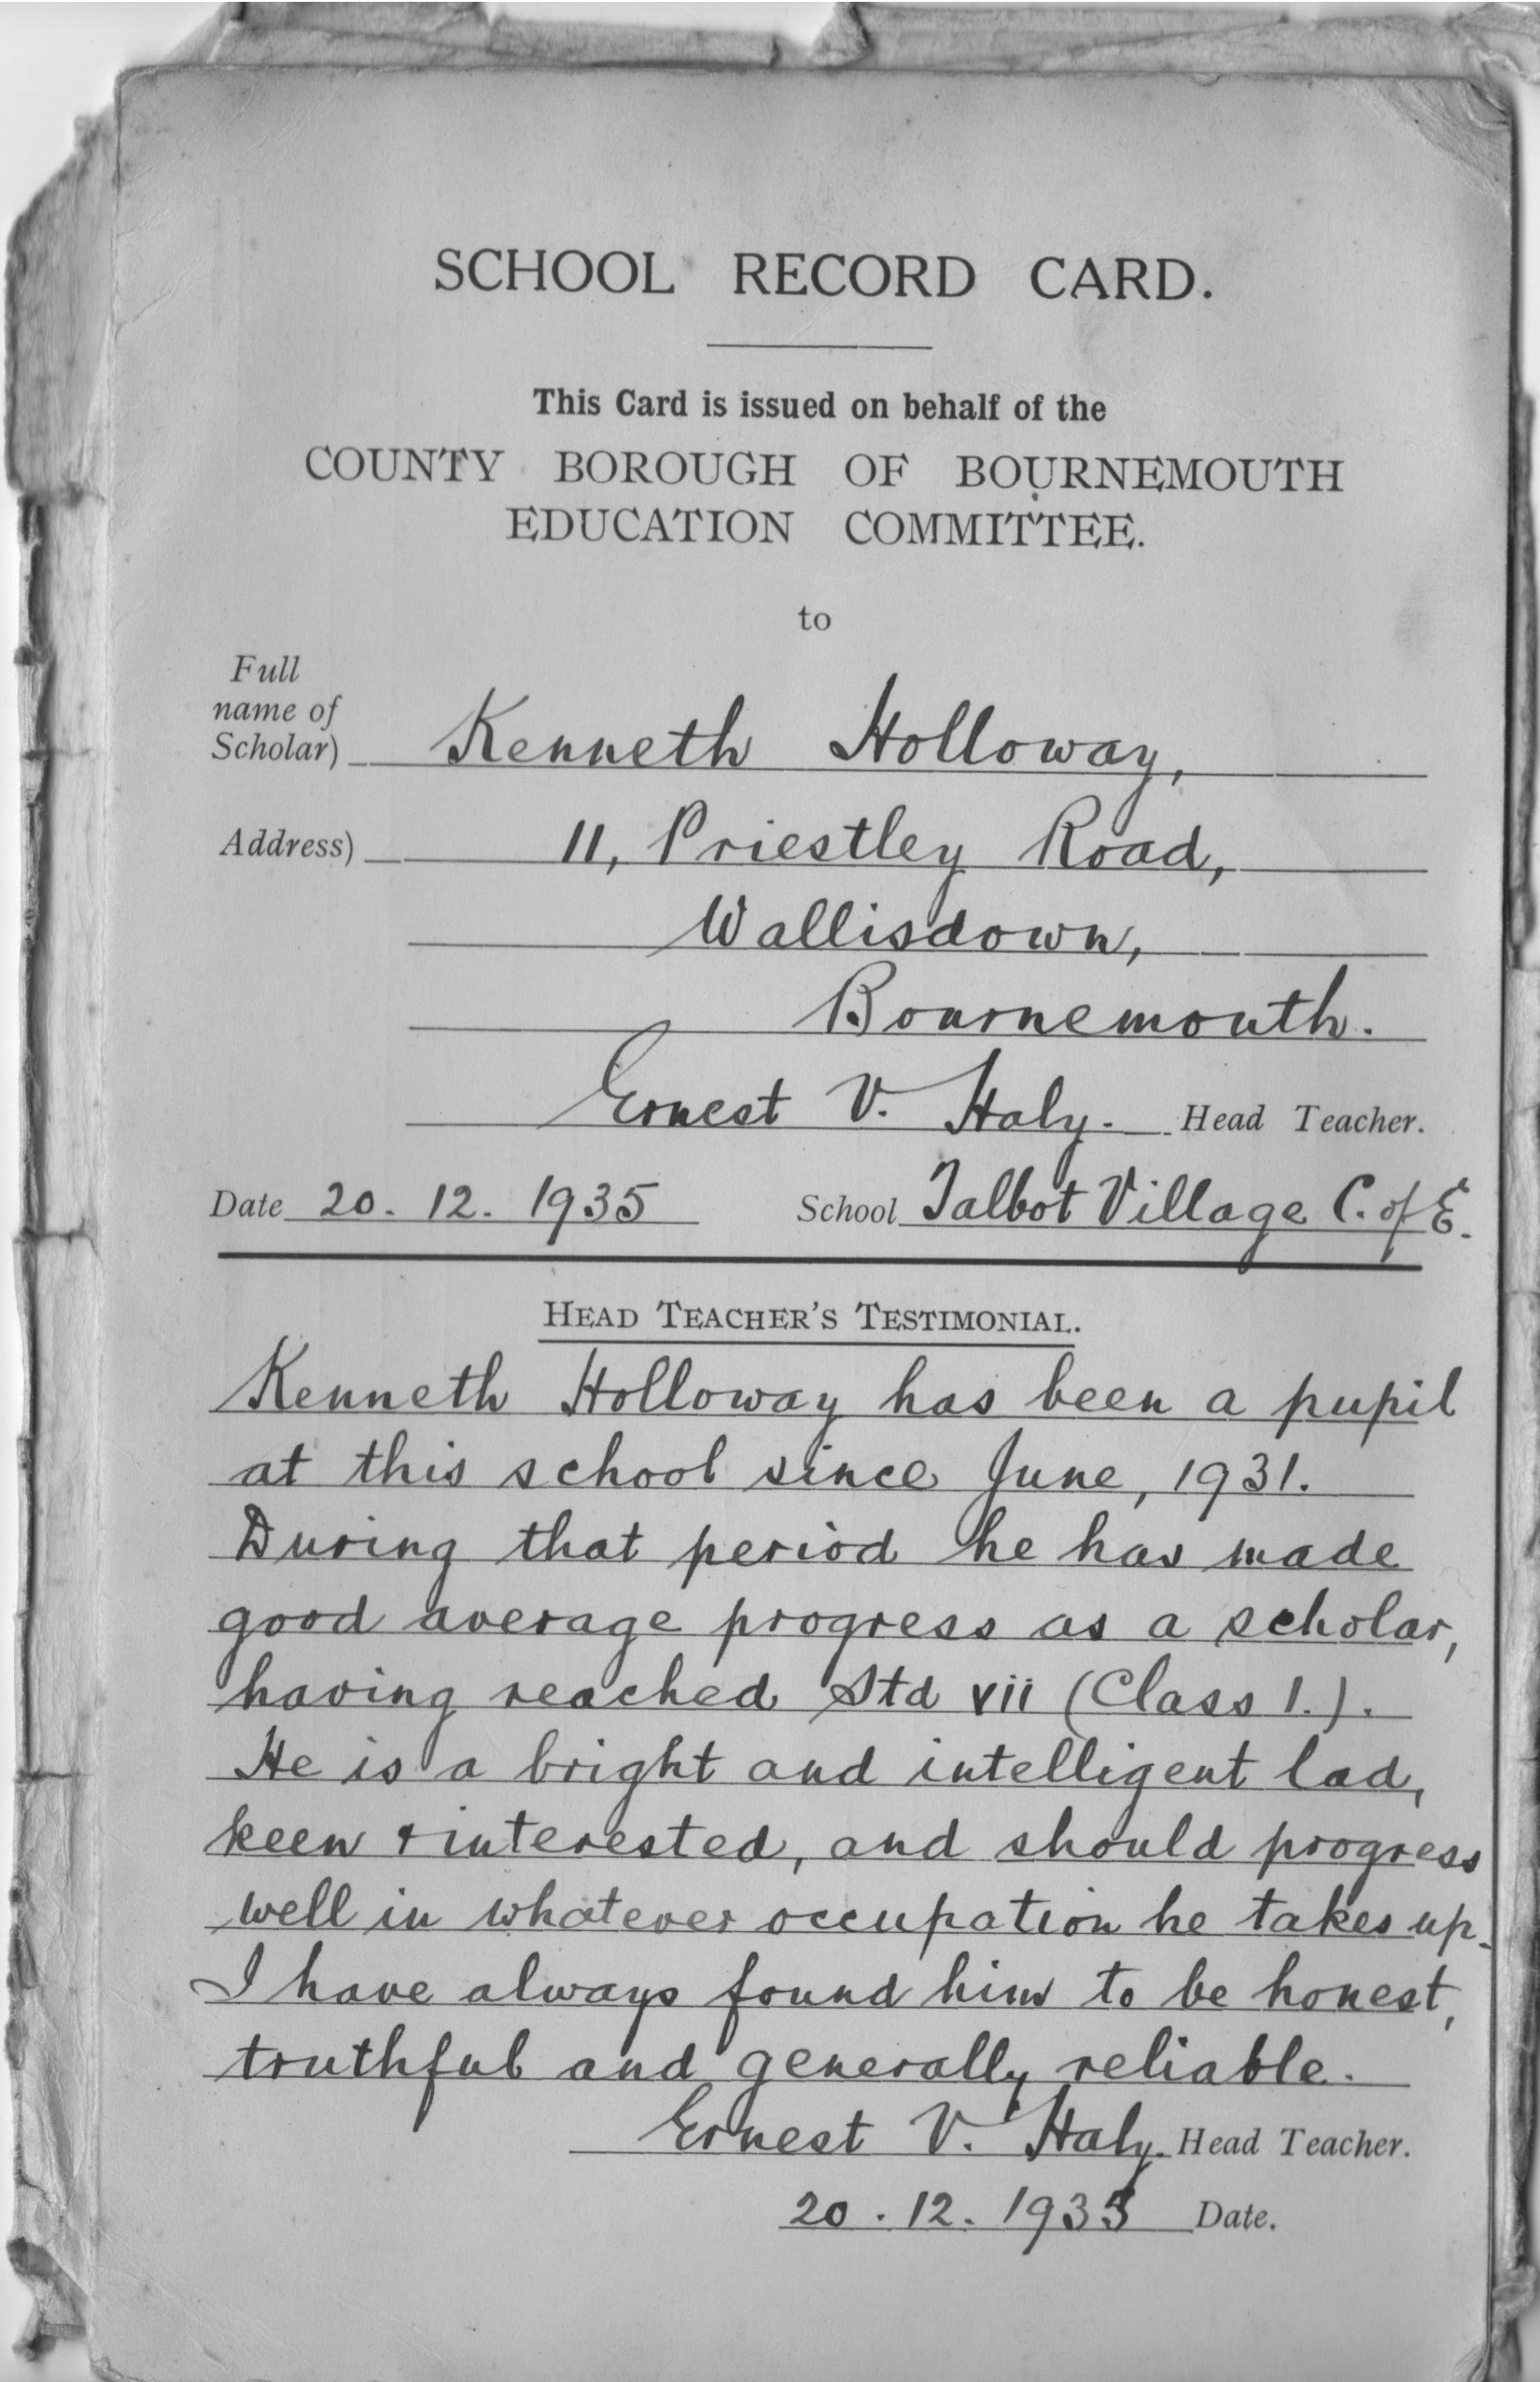 SCHOOL RECORD CARD.
This Card is issued on behalf of the
COUNTY BOROUGH OF BOURNEMOUTH
EDUCATION COMMITTEE.
to
Full
name of
Scholar) Kenneth Holloway,
Address) 11, Priestley Road,
Wallisdown,
Bournemouth.
Ernest V. Haly. Head Teacher.
Date 20. 12. 1935 School Talbot Village C. of E.
HEAD TEACHER'S TESTIMONIAL.
Kenneth Holloway has been a pupil
at this school since June, 1931.
During that period he has made
good average progress as a scholar,
having reached Std vii (Class 1.).
He is a bright and intelligent lad,
keen & interested, and should progress
well in whatever occupation he takes up.
I have always found him to be honest,
truthful and generally reliable.
Ernest V. Haly. Head Teacher.
20. 12. 1935 Date.